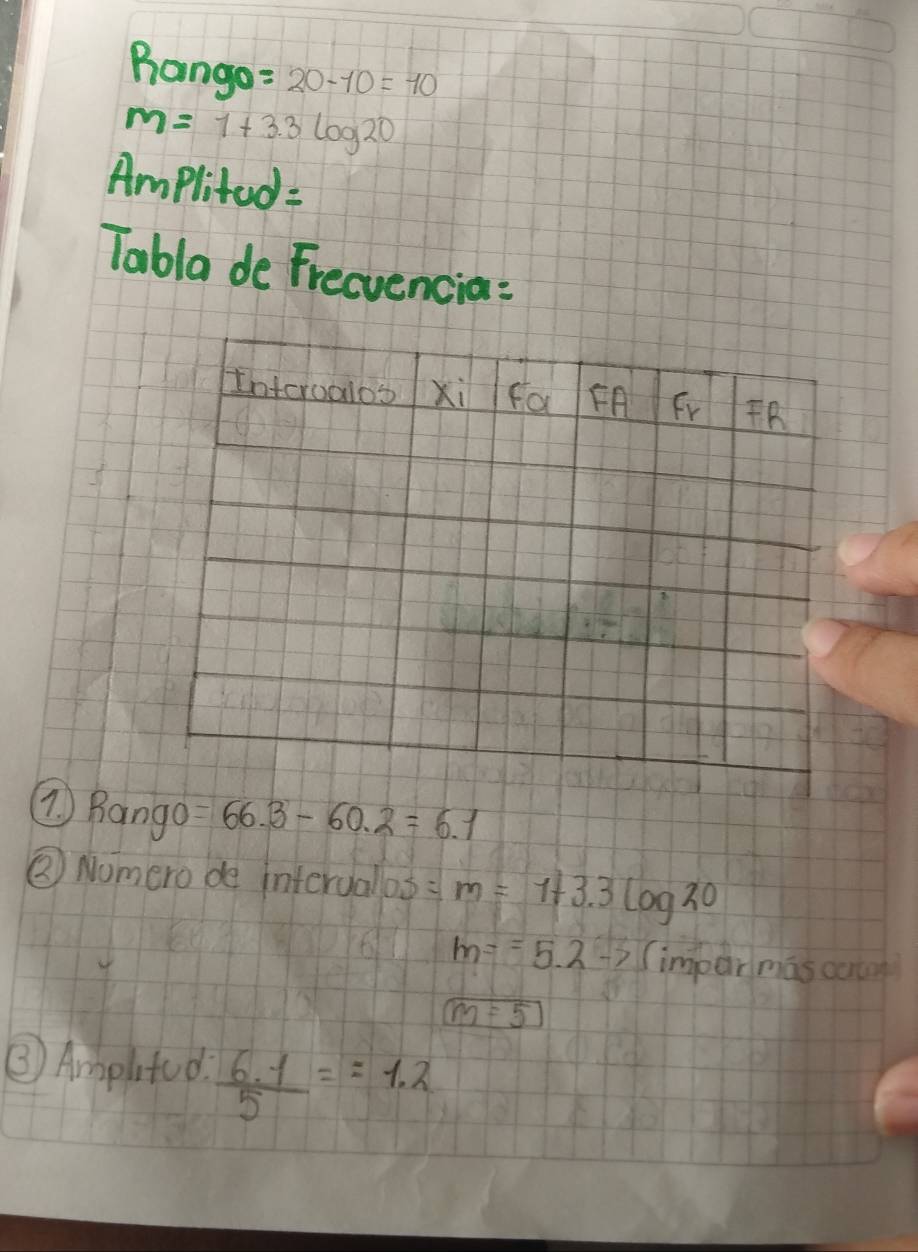 Rango = 20-10 = 10
m = 1+3.3 log20
Amplitud =
Tabla de Frecuencia =
Intervalos Xi Fa FA Fr FR
1. Rango = 66.3 - 60.2 = 6.1
2 Número de intervalos = m = 1+3.3 log 20
m = = 5.2 -> (impar más
m = 5
3 Amplitud: 6.1
5
= = 1.2